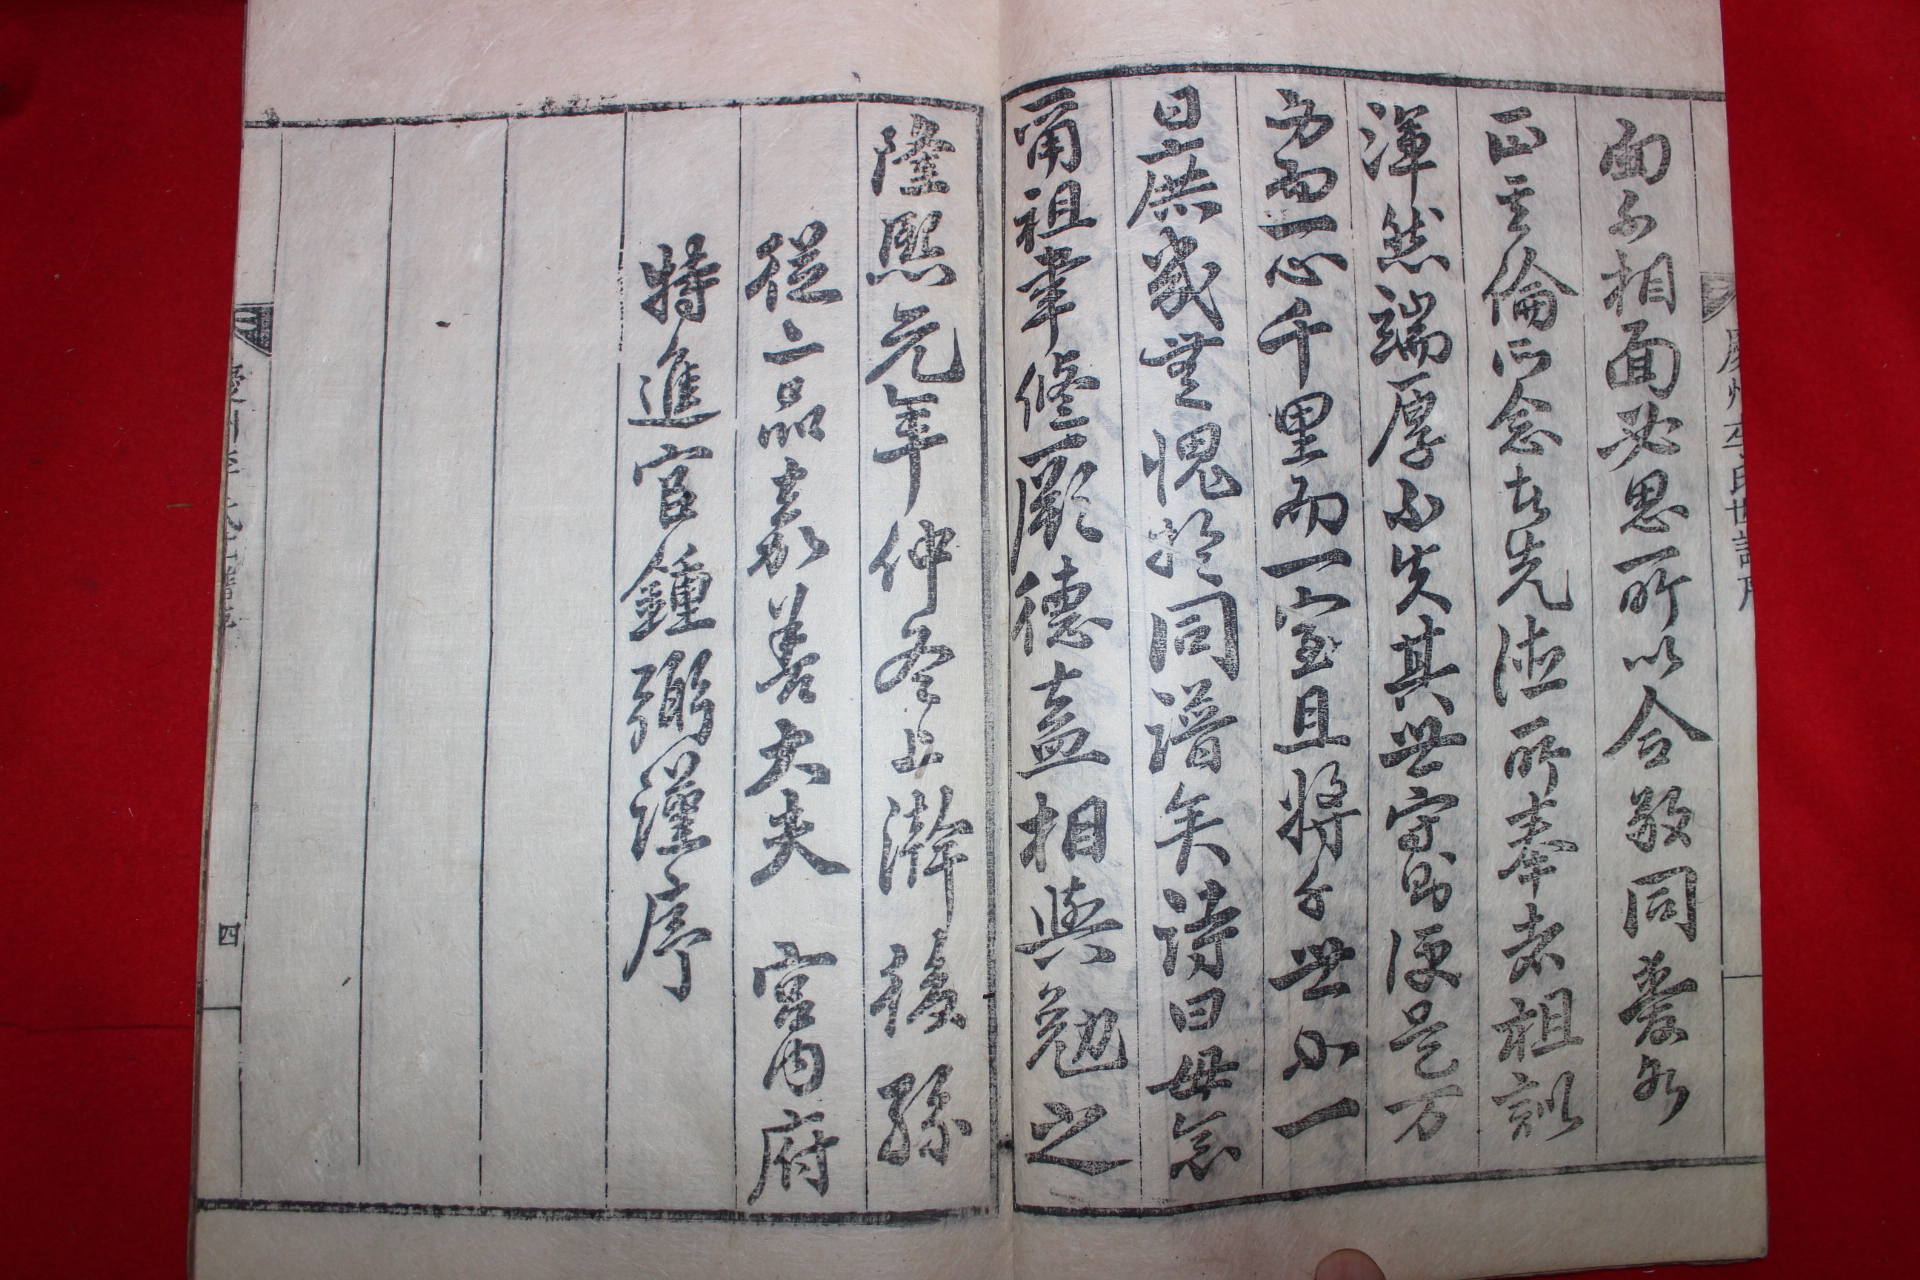 慶州李氏世譜序
面不相面必思所以合敬同愛各
正其倫所念在先德所奉者祖訓
渾然端厚不失其世守則便是万
方而一心千里而一室且將千世而一
日庶幾無愧於同譜矣詩曰毋念
爾祖聿修厥德盍相與勉之
隆熙元年仲冬上澣後孫
從二品嘉善大夫 宮內府
特進官鍾弼謹序
慶州李氏世譜序
四